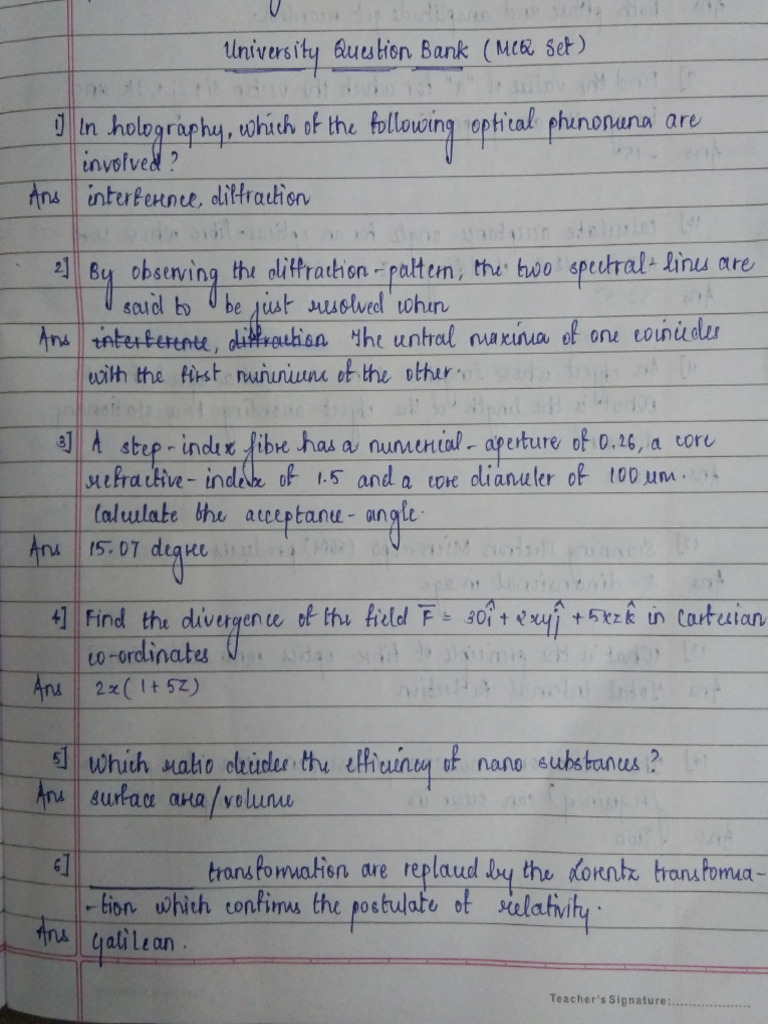 University Question Bank (MCQ Set)
1] In holography, which of the following optical phenomena are
involved?
Ans interference, diffraction
2] By observing the diffraction-pattern, the two spectral-lines are
said to be just resolved when
Ans interference, diffraction The central maxima of one coincides
with the first minimum of the other.
3] A step-index fibre has a numerial-aperture of 0.26, a core
refractive-index of 1.5 and a core diameter of 100 um.
Calculate the acceptance-angle.
Ans 15.07 degree
4] Find the divergence of the field F̅ = 30î + 2xyĵ + 5xzk̂ in Cartesian
co-ordinates
Ans 2x(1+5z)
5] Which ratio decides the efficiency of nano substances?
Ans surface area/volume
6] ________ transformation are replaced by the Lorentz transforma-
-tion which confirms the postulate of relativity.
Ans Galilean.
Teacher's Signature:....................